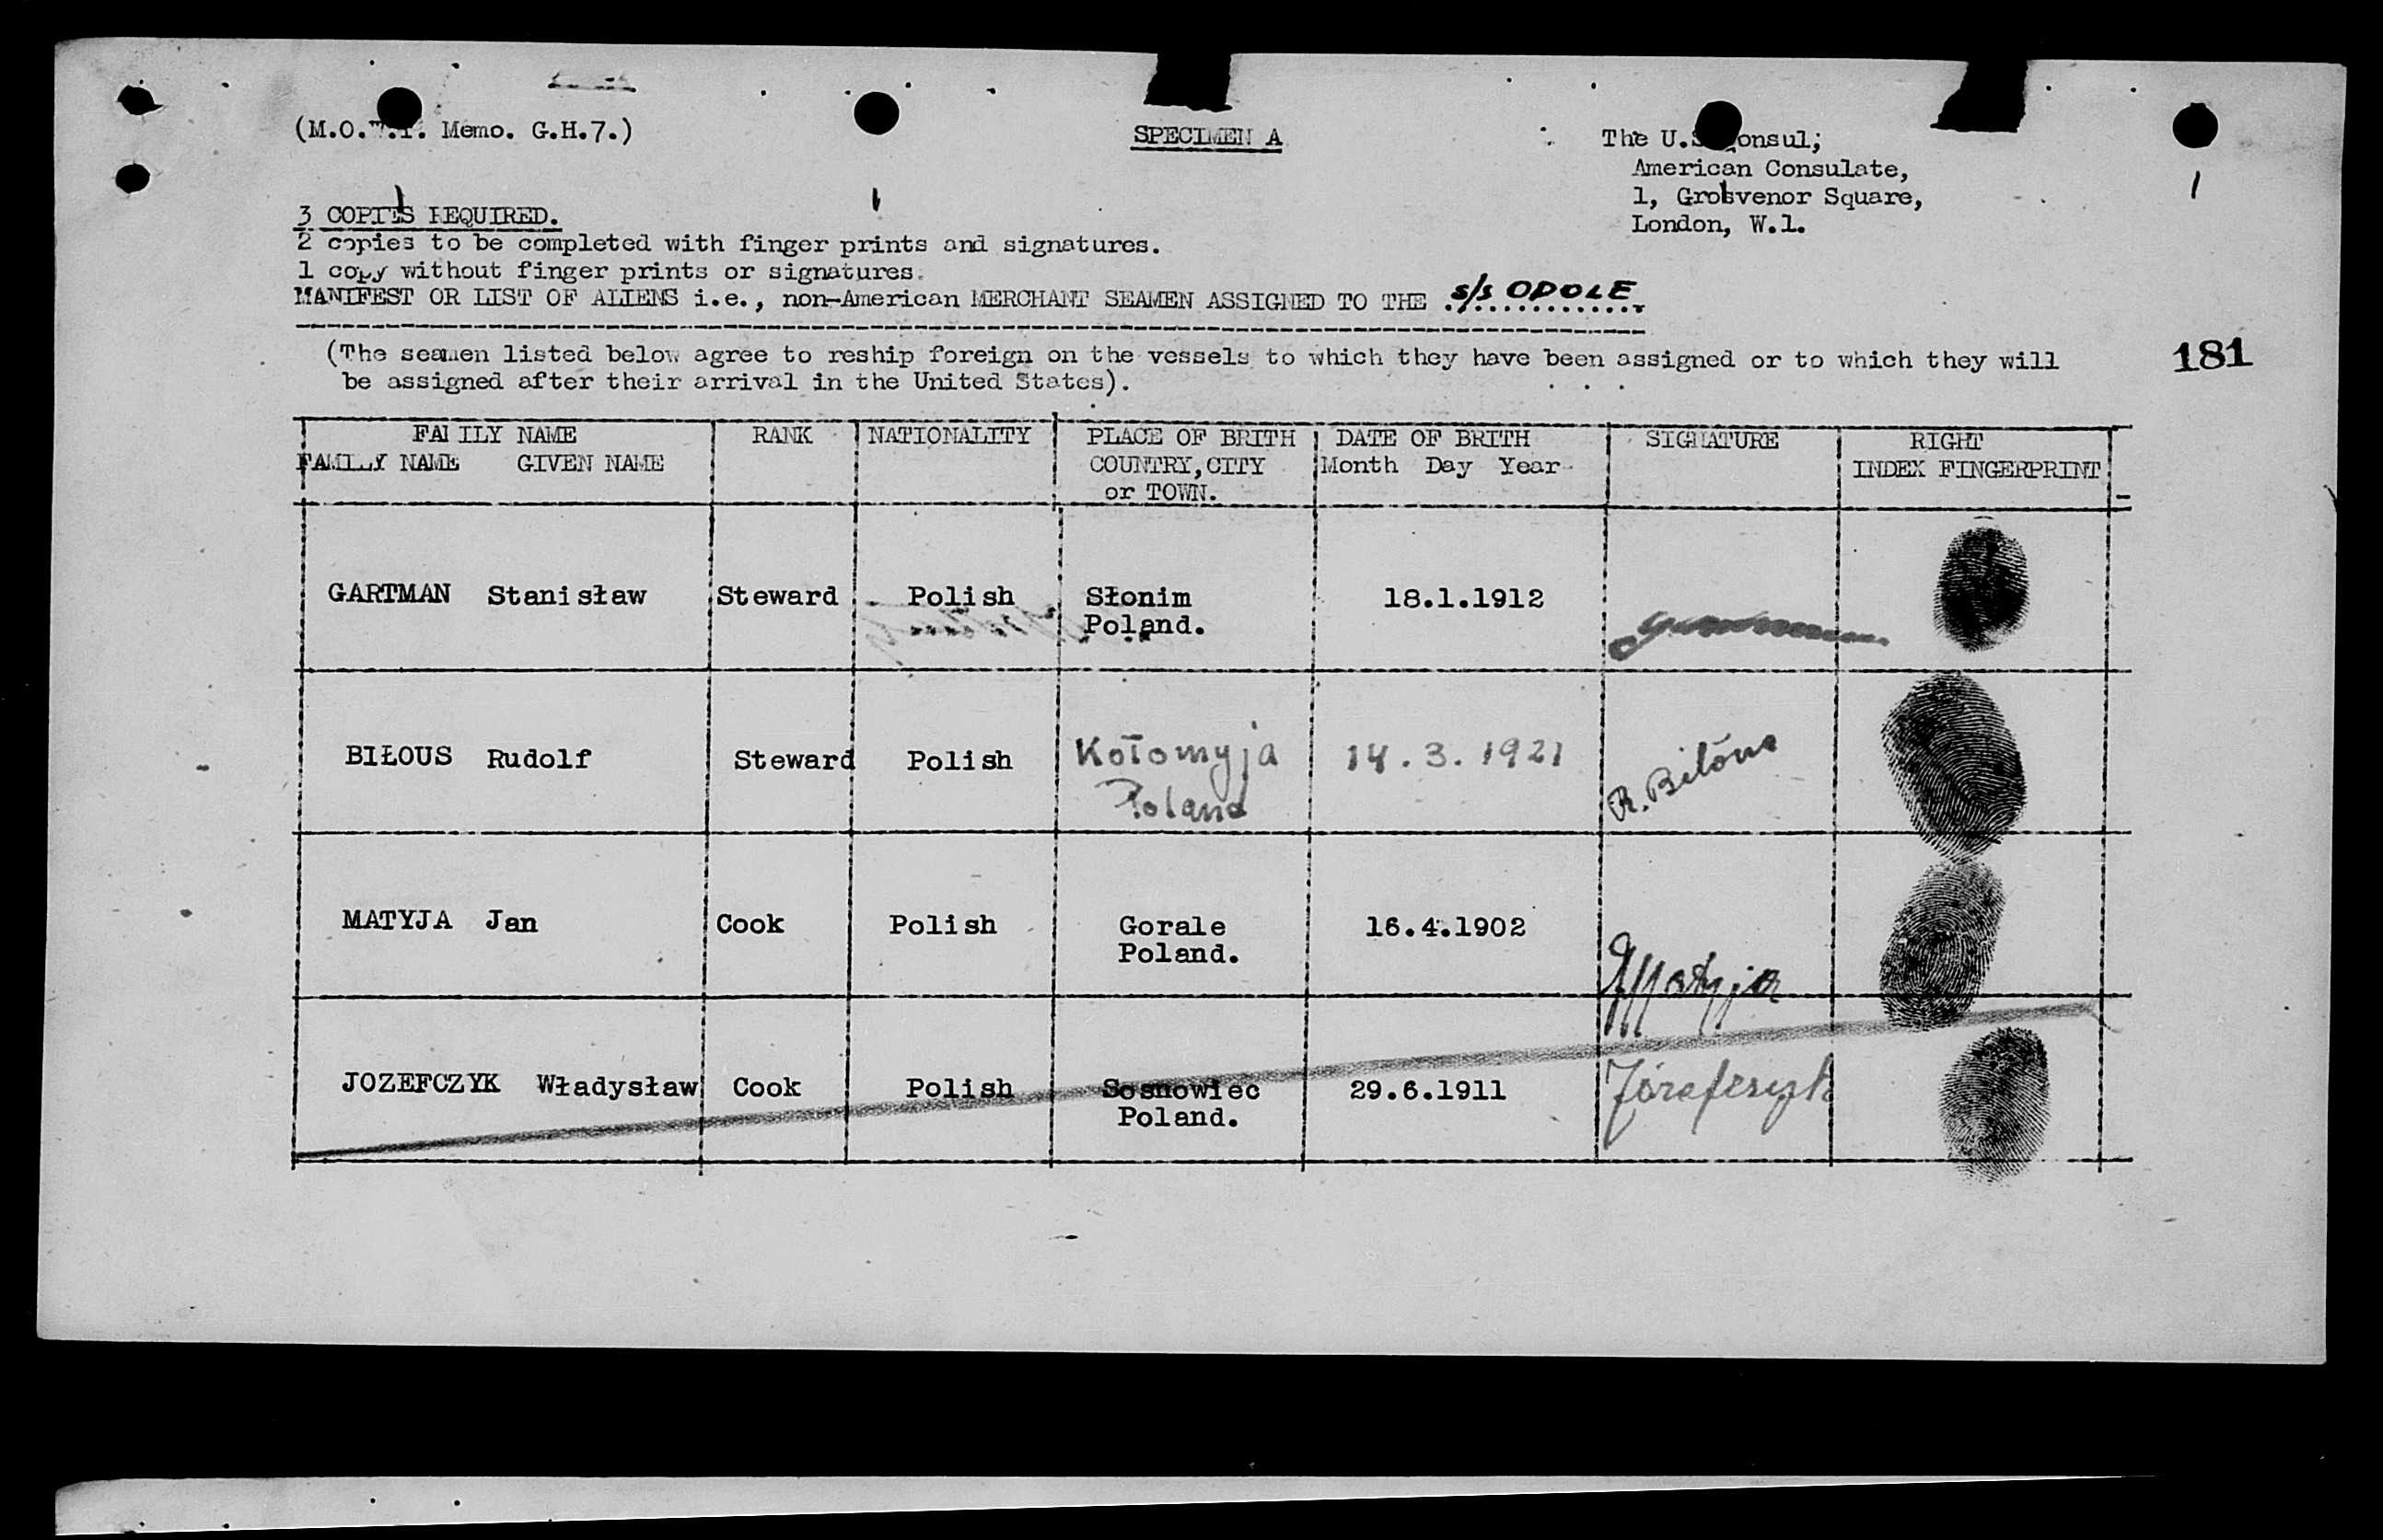 (M.O.W.T. Memo. G.H.7.)
SPECIMEN A
The U.S. Consul;
American Consulate,
1, Grosvenor Square,
London, W.1.
3 COPIES REQUIRED.
2 copies to be completed with finger prints and signatures.
1 copy without finger prints or signatures.
MANIFEST OR LIST OF ALIENS i.e., non-American MERCHANT SEAMEN ASSIGNED TO THE s/s OPOLE
(The seamen listed below agree to reship foreign on the vessels to which they have been assigned or to which they will
be assigned after their arrival in the United States).
181
FAMILY NAME RANK NATIONALITY PLACE OF BRITH DATE OF BRITH SIGNATURE RIGHT
FAMILY NAME GIVEN NAME COUNTRY, CITY Month Day Year INDEX FINGERPRINT
or TOWN.
GARTMAN Stanisław Steward Polish Słonim 18.1.1912
Poland.
BIŁOUS Rudolf Steward Polish Kołomyja 14.3.1921 R. Biłous
Poland
MATYJA Jan Cook Polish Gorale 16.4.1902 JMatyja
Poland.
JOZEFCZYK Władysław Cook Polish Sosnowiec 29.6.1911 Józefczyk
Poland.